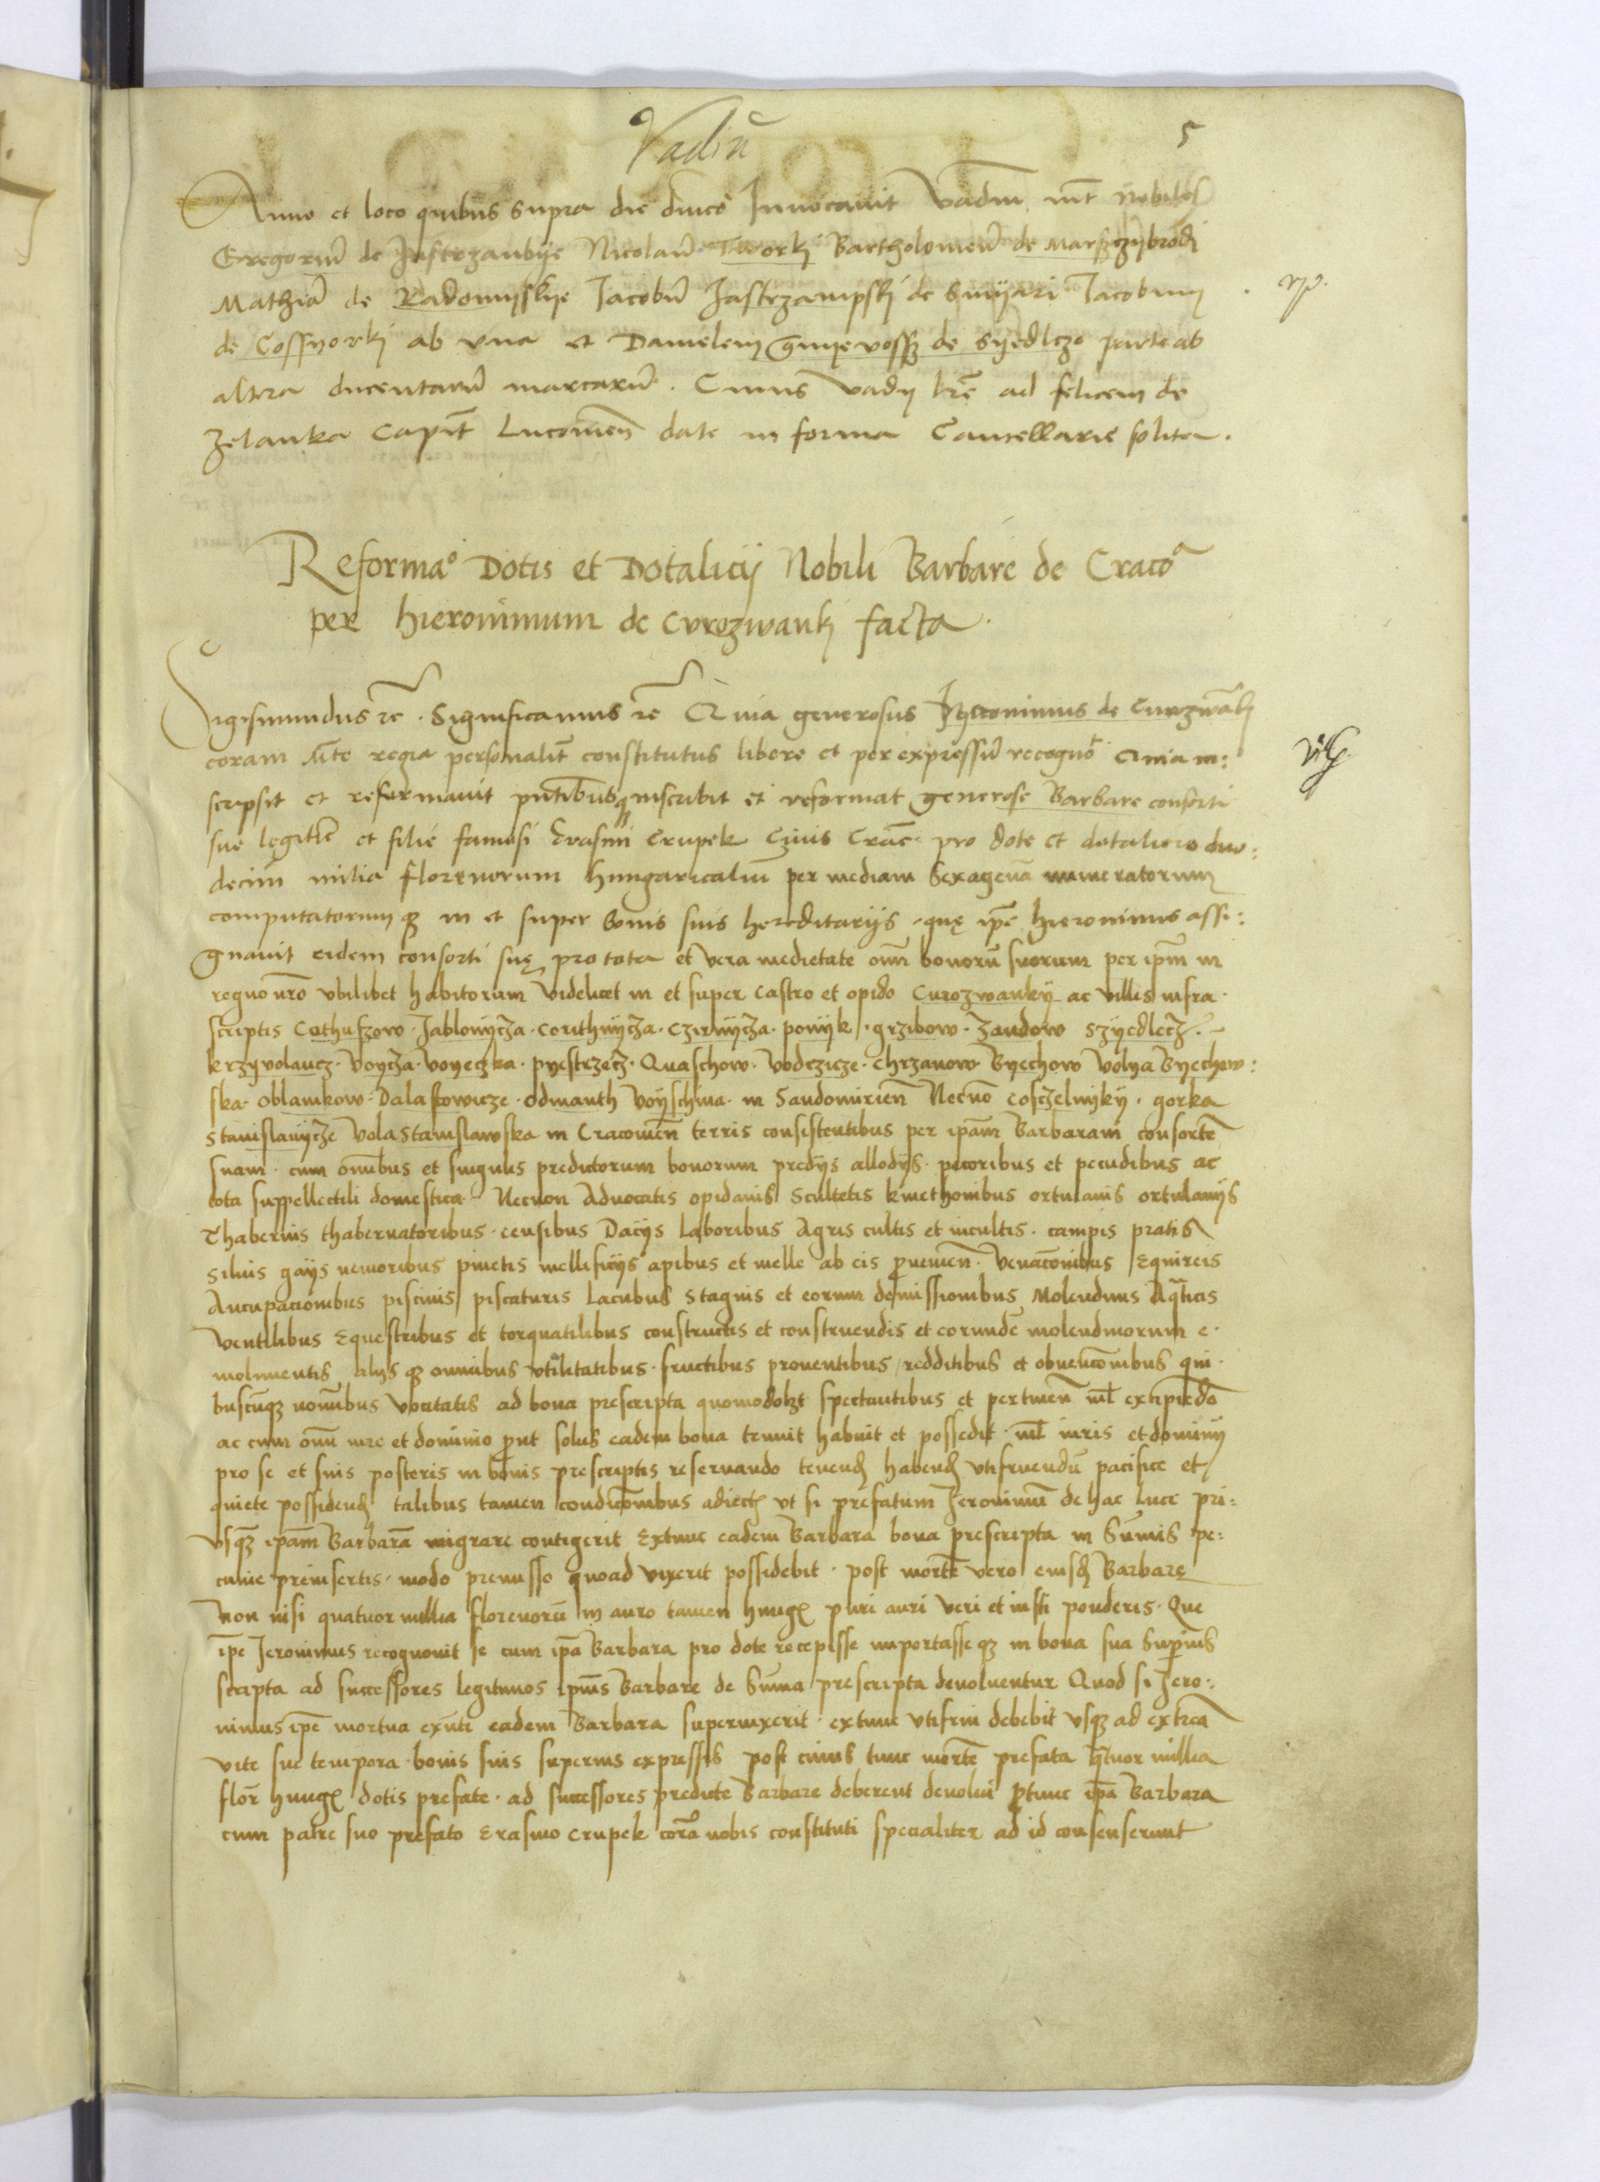 Vadiū
5
Anno et loco quibus supra die dnico Invocavit Vadium int Nobiles
Gregoriū de Jastrzambye Nicolaū Tworki Bartholomeū de Marszczybrodi
Mathiā de Radomyskye Jacobū Jastrzampski de Smyari Jacobum
de Cossnorki ab vna et Danielem de Syedlcze parte ab
altera ducentarū marcarū. Cuius vadij lrē ad felicem de
Zelanka Capit Lucovien date in forma Cancellarie solita.
Reformaº Dotis et Dotalicij Nobili Barbare de Cracoª
per Hieronimum de Curozwanki facta.
Sigismundus rē. Significamus rē Quia generosus Hieronimus de Curozwāki
coram Mte regia personalit constitutus libere et per expressū recogno Quia in:
scripsit et reformauit pntibusq inscribit et reformat generose Barbare consorti
sue legittē et filie famosi Erasmi Crupek Ciuis Crac pro dote et dotalicio duo:
decim milia florenorum hungaricaliū per mediam Sexagenā numeratorum
computatorumq in et super bonis suis hereditarijs que ipe Hieronimus assi:
gnauit eidem consorti sue pro tota et vera medietate omī bonorū suorum per ipm in
regno nro vbilibet habitorum Videlicet in et super castro et opido Curozwanky ac villis infra
scriptis Cothuszow Jablonycza Corithnycza Czirnycza ponyk grzibow Zandow Szyedlecz
krzyvolancz Voycza Voyeczka pyestrzecz Quaschow Vodczicze Chrzanow Byechow Volya Byechow:
ska Oblamkow Dalaschowicze Odmanth Voyschina in Sandomirien Necnō Coszelniky gorka
Stanislauycze Vola Stanislawska in Cracovien terris consistentibus per ipam Barbaram consortē
suam cum omibus et singulis predictorum bonorum predijs allodijs pecoribus et pecudibus ac
tota suppellectili domestica Necnon Aduocatis opidanis Scultetis kmethonibus ortulanis ortulanijs
Thabernis thabernatoribus censibus Dacijs Laboribus Agris cultis et incultis campis pratis
Siluis gays nemoribus pinetis mellificijs apibus et melle ab eis prouenien Venacōnibus Equireis
Aucupacionibus piscinis piscaturis Lacubus Stagnis et eorum demissionibus Molendinis Aqticis
Ventilibus Equestribus et torquatilibus constructis et construendis et eorundē molendinorum e
molimentis alijsq omnibus vtilitatibus fructibus prouentibus redditibus et obuencōnibus qui
buscūq nominibus vocitatis ad bona prescripta quomodolzt spectantibus et pertinen nil excipiēdo
ac cum omī iure et dominio put solus eadem bona tenuit habuit et possedit nil iuris et dominij
pro se et suis posteris in bonis prescriptis reseruando tenend habend vtifruendū pacifice et
quiete possidend talibus tamen condicōnibus adiectis vt si prefatum Jeronimū de hac luce pri:
usq ipam Barbarā migrare contigerit Extunc eadem Barbara bona prescripta in Sūmis pe:
cunie preinsertis modo premisso quoad vixerit possidebit post mortē vero eiusd Barbare
Non nisi quatuor millia florenorū in auro tamen hung puri auri veri et iusti ponderis Que
ipe Jeronimus recognouit se cum ipa Barbara pro dote recepisse importasseq in bona sua Superius
scripta ad successores legitimos ipius Barbare de Sūma prescripta deuoluentur Quod si Jero:
nimus ipe mortua exnti eadem Barbara superuixerit extunc vtifrui debebit vsq ad extrēa
vite sue tempora bonis suis superius expressis post cuius tunc mortē prefata qtuor millia
flor hung dotis prefate ad successores predicte Barbare deberent deuolui prtunc ipa Barbara
cum patre suo prefato Erasmo Crupek corā nobis constituti specialiter ad id consenserunt